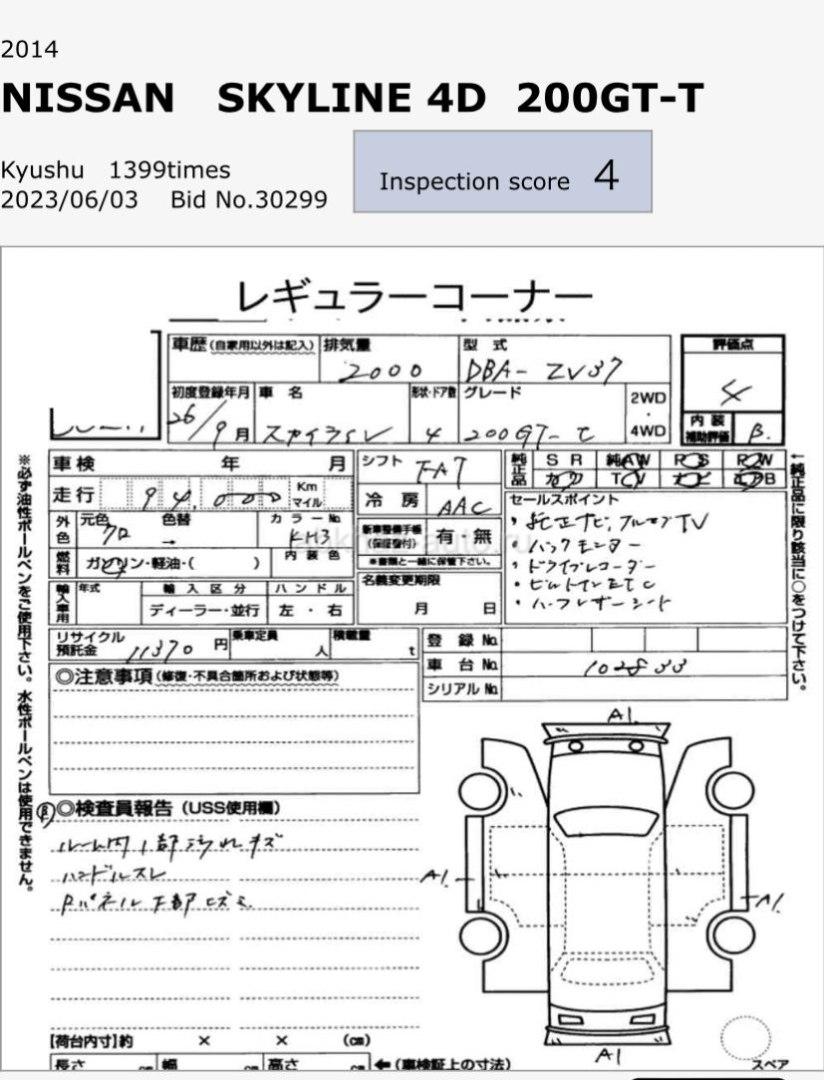 2014
NISSAN SKYLINE 4D 200GT-T
Kyushu 1399times
2023/06/03 Bid No.30299
Inspection score 4
レギュラーコーナー
車歴(自家用以外は記入) 排気量 型式 評価点
2000 DBA- ZV37 4
初度登録年月 車名 形状・ドア数 グレード 2WD・4WD 内装補助評価
26/9月 スカイライン 4 200GT-t B.
車検 年 月 シフト FAT 純正品 SR 純AW PS PW
走行 94,000 Km マイル 冷房 AAC カワ TV ナビ エアB
外色 元色 色替 カラーNo. 新車整備手帳(保証書付) 有 無 セールスポイント
クロ → KH3 ※書類と一緒に保管下さい。
・純正ナビ,フルセグTV
・バックモニター
・ドライブレコーダー
・ビルトインETC
・ハーフレザーシート
燃料 ガソリン・軽油・( ) 内装色
名義変更期限 月 日
輸入車用 年式 輸入区分 ハンドル
ディーラー・並行 左・右
リサイクル預託金 11370円 乗車定員 人 積載量 t
登録No.
車台No. 102833
シリアルNo.
◎注意事項(修復・不具合箇所および状態等)
◎検査員報告(USS使用欄)
ルーム内1部汚れキズ
ハンドルスレ
Rパネル下部ヒズミ
A1.
A1.
A1.
A1
スペア
【荷台内寸】約 × × (cm)
長さ cm 幅 cm 高さ cm ←(車検証上の寸法)
※必ず油性ボールペンをご使用下さい。水性ボールペンは使用できません。
←純正品に限り該当に○をつけて下さい。